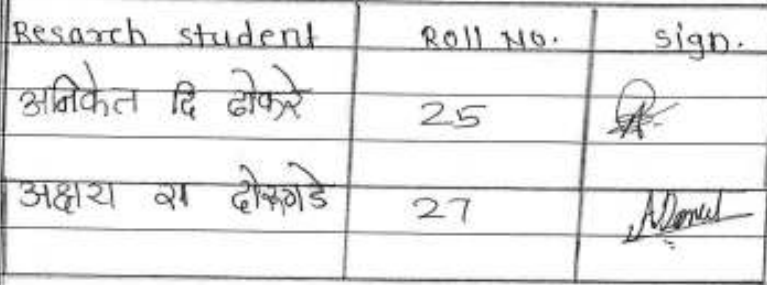 Resarch student Roll No. sign.
अनिकेत दि ढोकरे 25
अक्षय रा 27